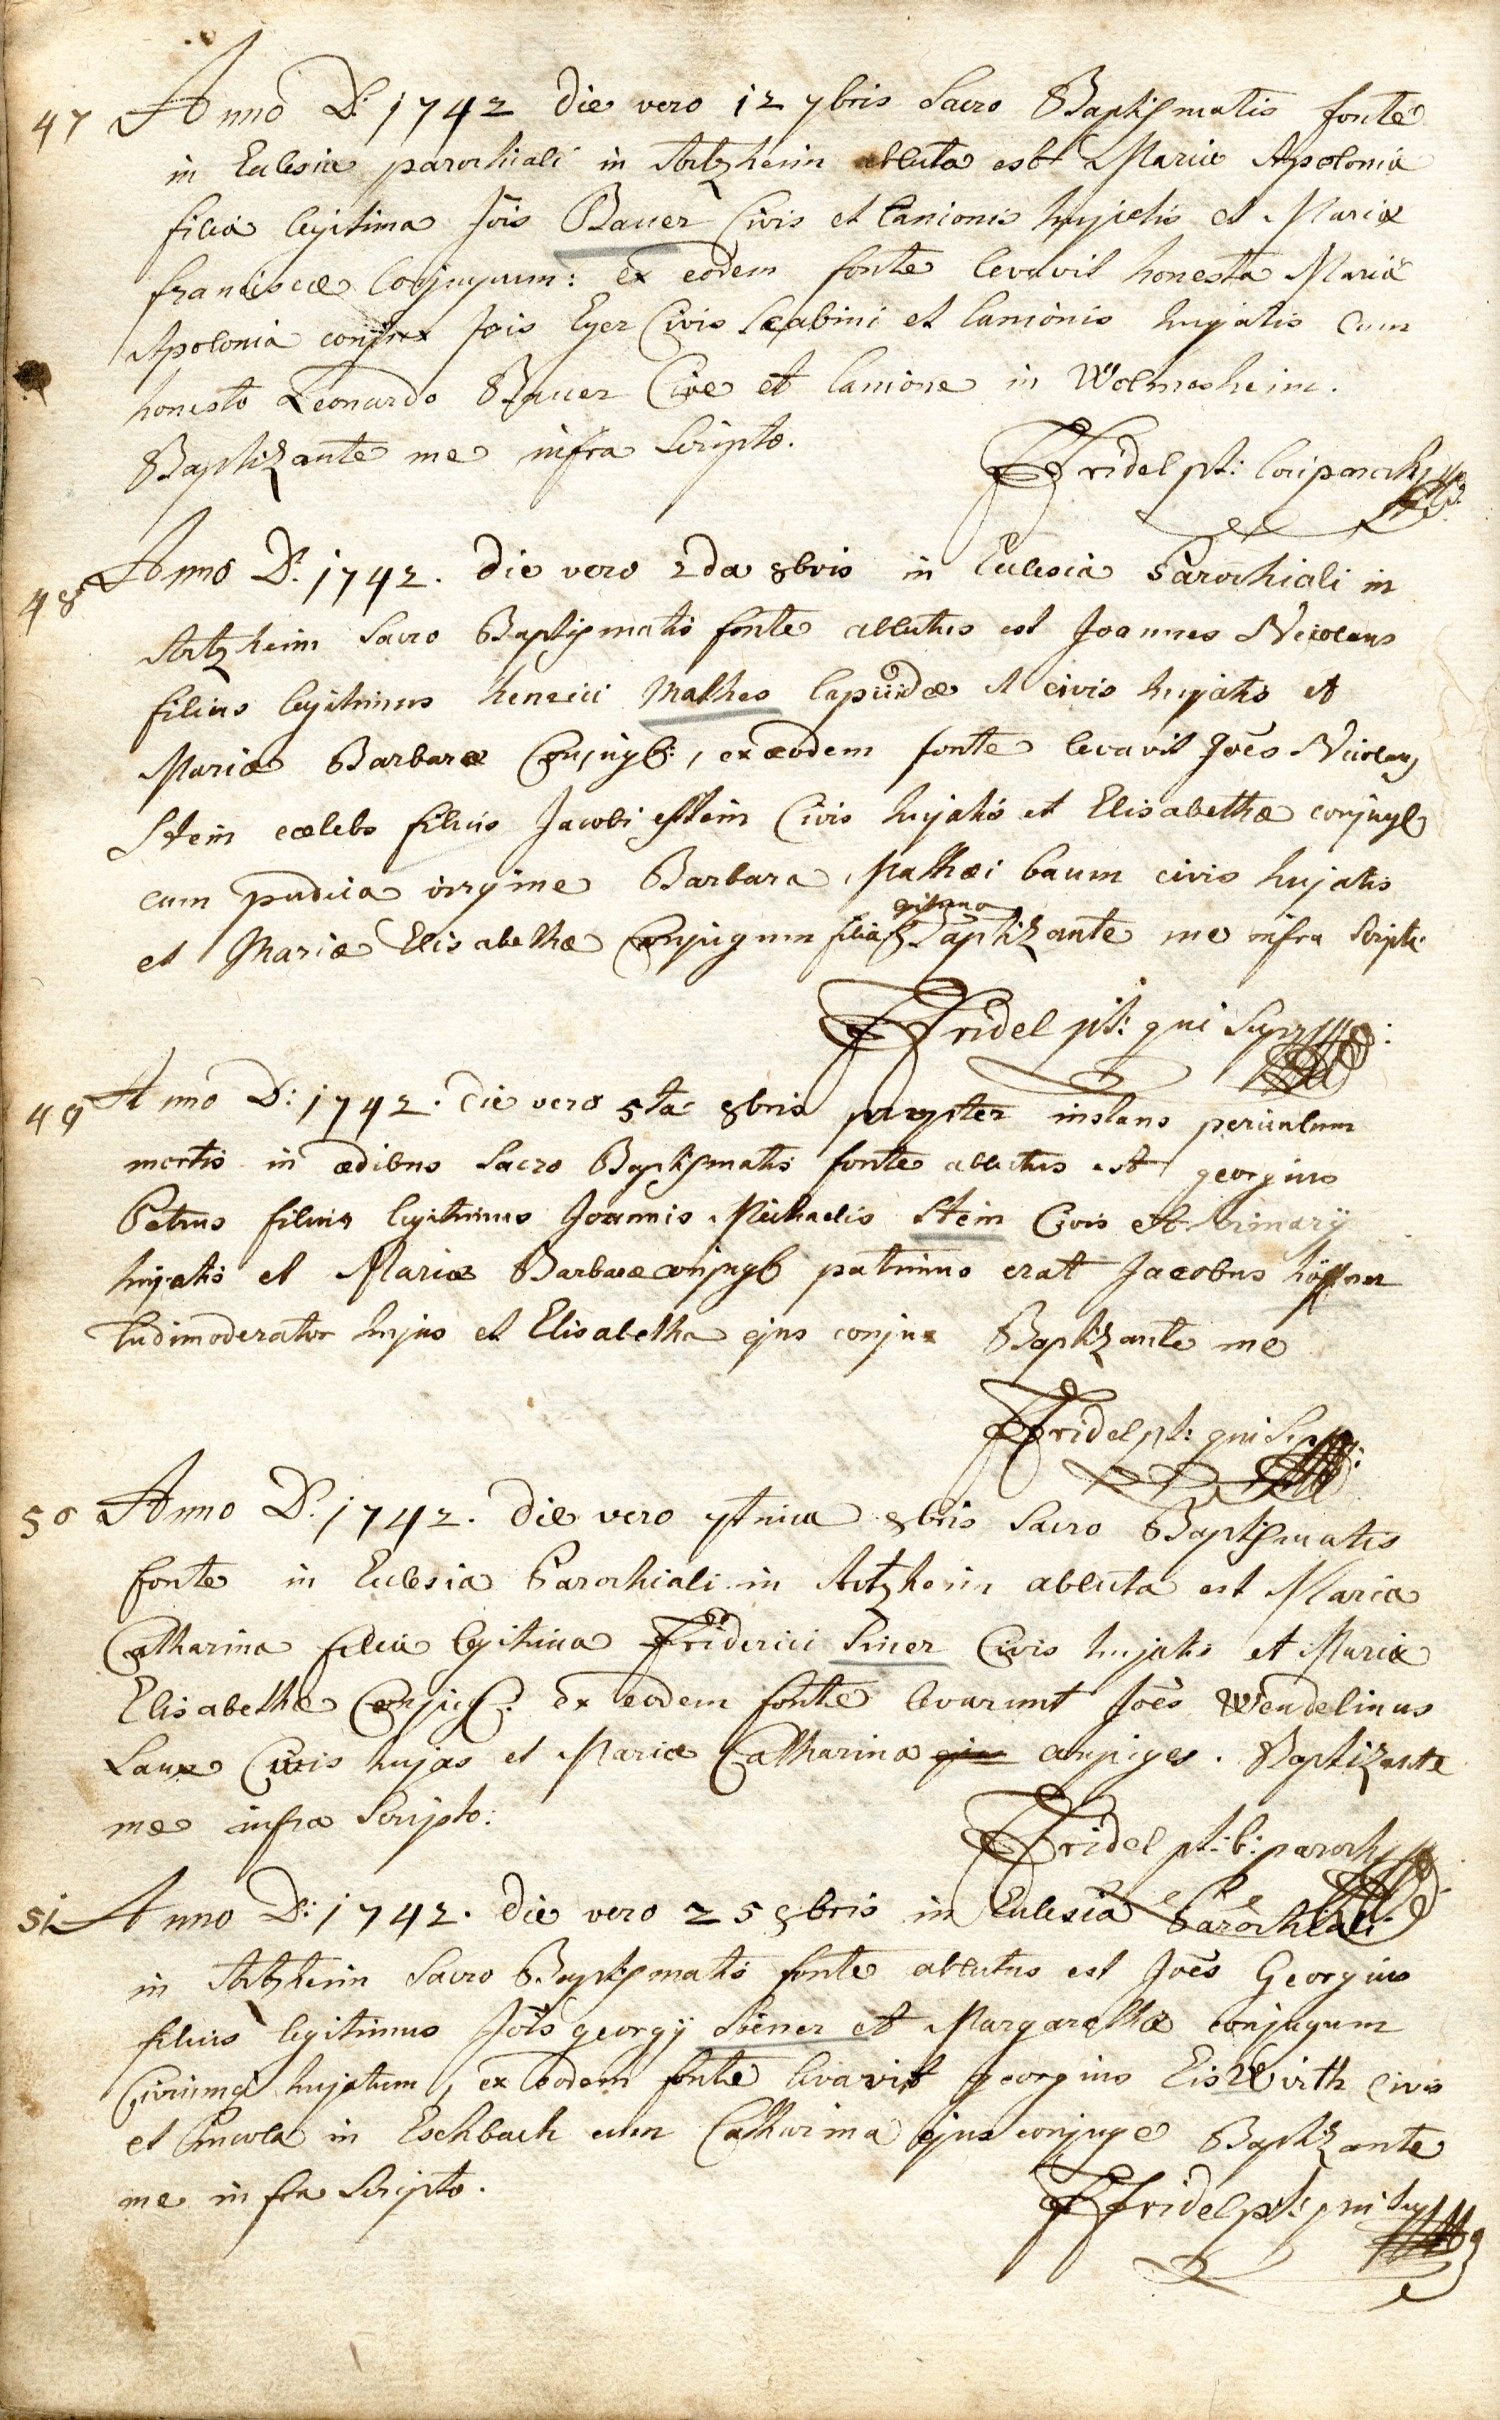 47 Anno D: 1742 die vero 12 7bris Sacro Baptismatis fonte
in Eclesia parochiali in Artzheim abluta est Maria Apolonia
filia legitima Jois Bauer Civis et Lanionis hujatis et Mariæ
franciscæ Conjugum: ex eodem fonte levavit honesta Maria
Apolonia conjux Jois Eyer Civis Scabini et lanionis hujatis cum
honesto Leonardo Bauer Cive et lanione in Wolmesheim.
Baptizante me infra Scripto.
FFridel pt:
48 Anno D: 1742. die vero 2da 8bris in Eclesia Parochiali in
Artzheim Sacro Baptismatis fonte ablutus est Joannes Nicolaus
filius legitimus henrici Mathes lapicidæ et civis hujatis et
Mariæ Barbaræ Conjugb:, ex eodem fonte levavit Joes Nicolaus
Stein cælebs filius Jacobi Stein Civis hujatis et Elisabethæ conjugb
cum pudica virgine Barbara Mathæi baum civis hujatis
et Mariæ Elisabethæ Conjugum filia Baptizante me infra Scripto
FFridel pt: qui Supra
49 Anno D: 1742. die vero 5ta 8bris propter instans periculum
mortis in ædibus Sacro Baptismatis fonte ablutus est georgius
Petrus filius legitimus Joannis Michaelis Stein Civis et
hujatis et Mariæ Barbaræ conjugb patrinus erat Jacobus
Ludimoderator hujus et Elisabetha ejus conjux Baptizante me
FFridel pt: qui Supra
50 Anno D: 1742. die vero 8bris Sacro Baptismatis
fonte in Eclesia Parochiali in Artzheim abluta est Maria
Catharina filia legitima Friderici Siner Civis hujatis et Mariæ
Elisabethæ Conjug: Ex eodem fonte levarunt Joes Wendelinus
Laux Civis hujas et Maria Catharina conjuges. Baptizante
me infra Scripto:
FFridel pt:
51 Anno D: 1742. die vero 25 8bris in Eclesia Parochiali
in Artzheim Sacro Baptismatis fonte ablutus est Joes Georgius
filius legitimus Jois georgij Siener et Margarethæ conjugum
hujatum, ex eodem fonte levavit georgius EisWirth civis
et incola in Eschbach cum Catharina ejus conjuge Baptizante
me infra Scripto.
FFridel pt: qui Sup